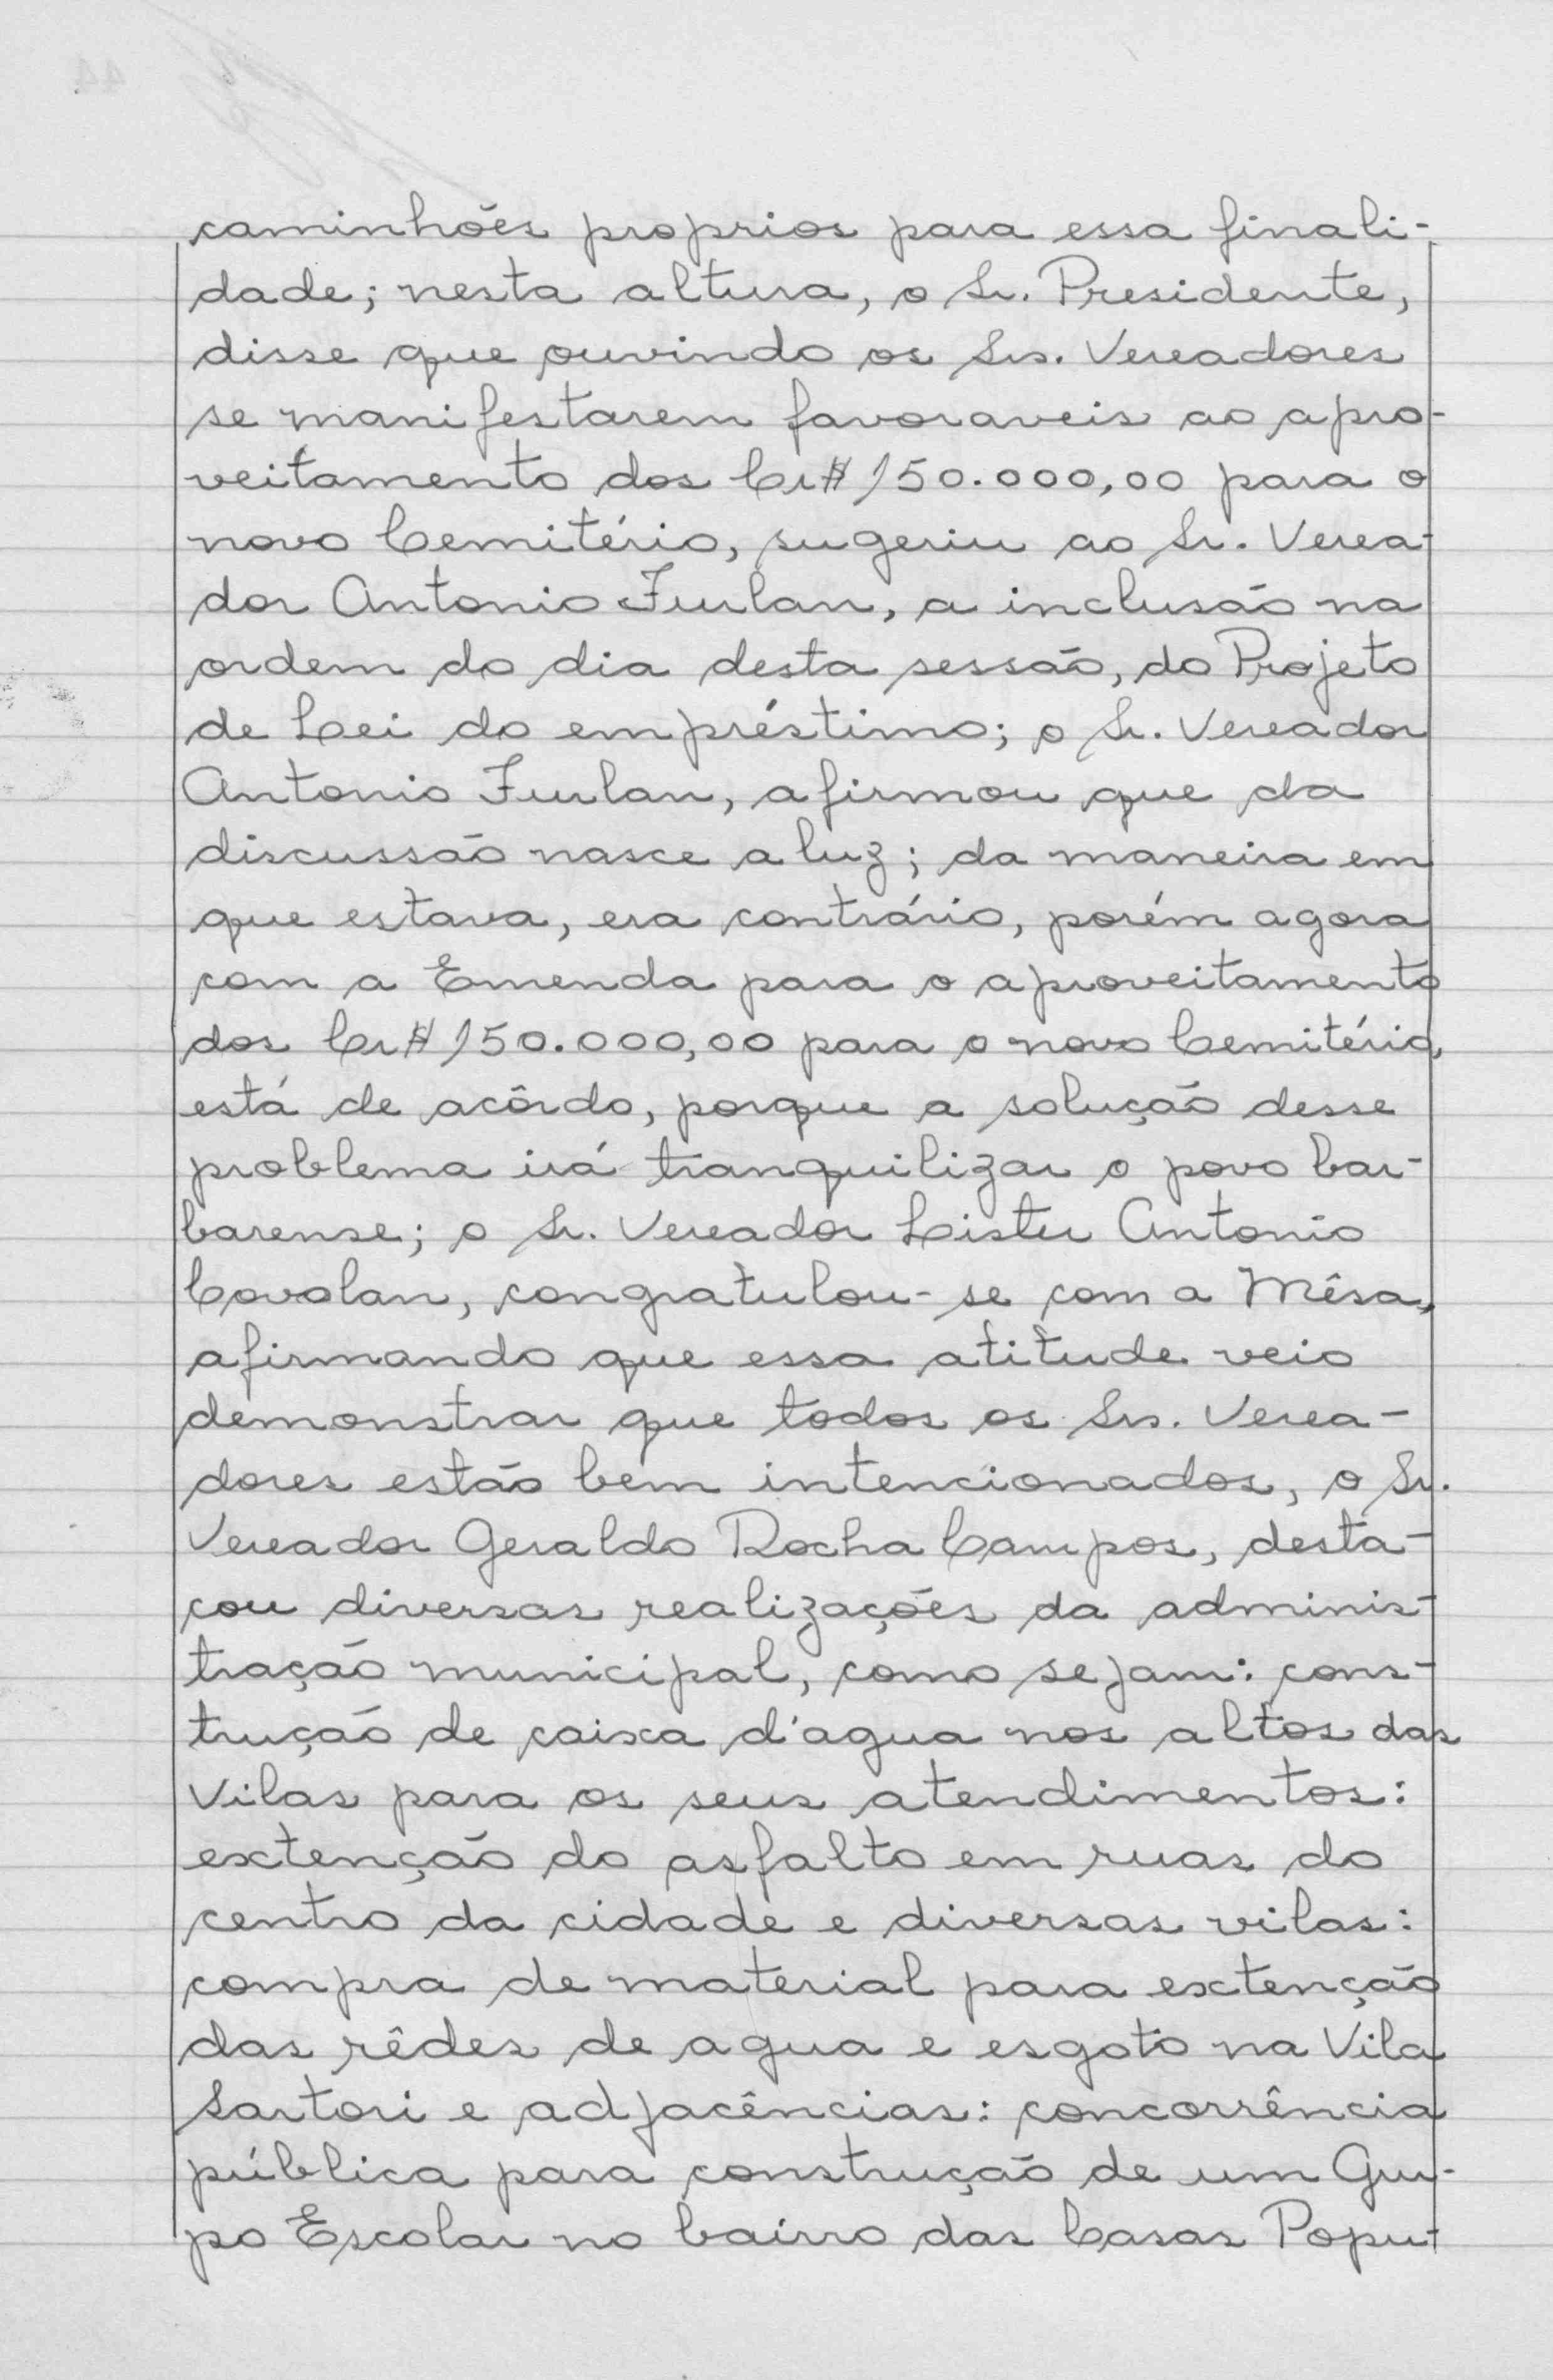 caminhões proprios para essa finali-
dade; nesta altura, o Sr. Presidente,
disse que ouvindo os Srs. Vereadores
se manifestarem favoraveis ao apro-
veitamento dos Cr$ 150.000,00 para o
novo Cemitério, sugeriu ao Sr. Verea-
dor Antonio Furlan, a inclusão na
ordem do dia desta sessão, do Projeto
de Lei do empréstimo; o Sr. Vereador
Antonio Furlan, afirmou que da
discussão nasce a luz; da maneira em
que estava, era contrário, porém agora
com a Emenda para o aproveitamento
dos Cr$ 150.000,00 para o novo Cemitério,
está de acôrdo, porque a solução desse
problema irá tranquilizar o povo bar-
barense; o Sr. Vereador Lister Antonio
Covolan, congratulou-se com a Mêsa,
afirmando que essa atitude veio
demonstrar que todos os Srs. Verea-
dores estão bem intencionados, o Sr.
Vereador Geraldo Rocha Campos, desta-
cou diversas realizações da adminis-
tração municipal, como sejam: cons-
trução de caixa d'agua nos altos das
Vilas para os seus atendimentos:
extenção do asfalto em ruas do
centro da cidade e diversas vilas:
compra de material para extenção
das rêdes de agua e esgoto na Vila
Sartori e adjacências: concorrência
pública para construção de um Gru-
po Escolar no bairro das Casas Popu-